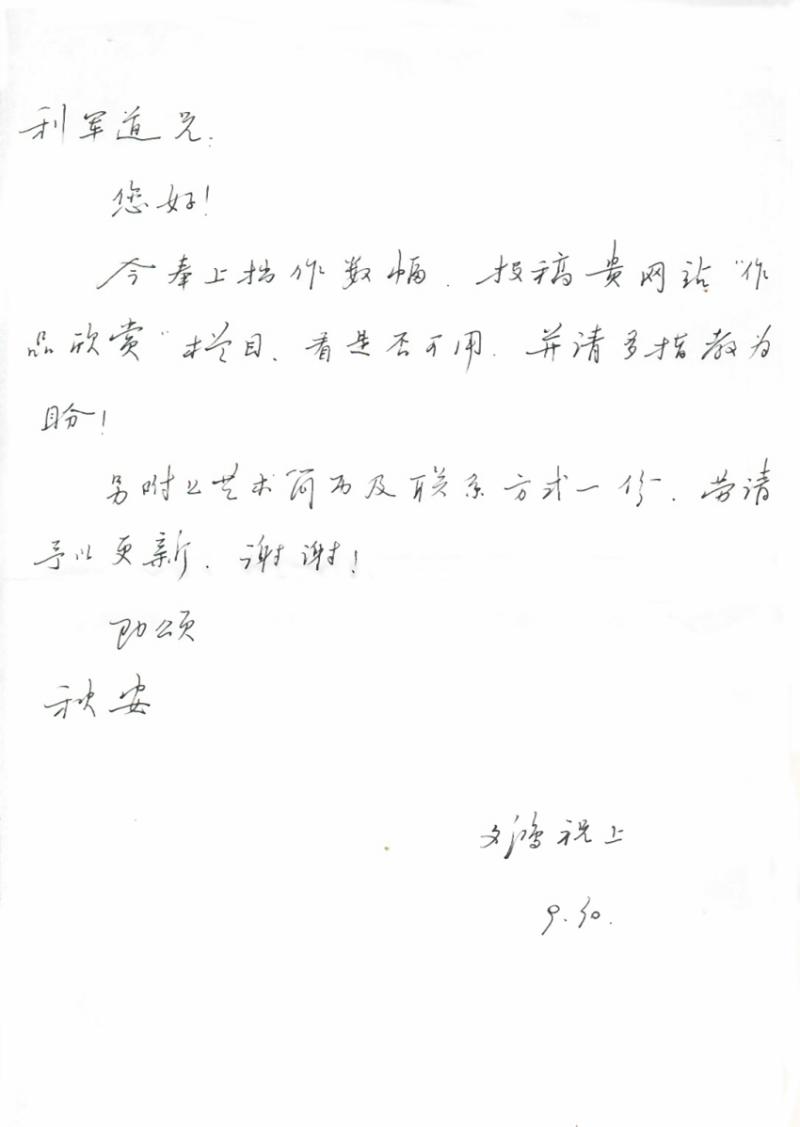 利军道兄：
您好！
今奉上拙作数幅，投稿贵网站“作
品欣赏”栏目，看是否可用，并请多指教为
盼！
另附上艺术简历及联系方式一份，劳请
予以更新，谢谢！
即颂
秋安
文鸿祝上
9.30.